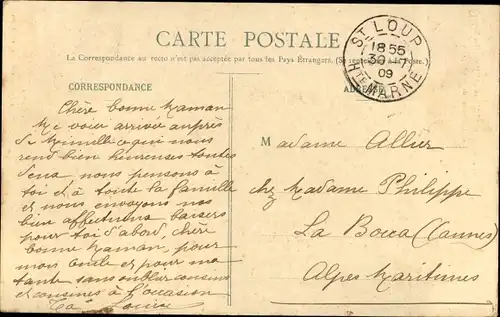 CARTE POSTALE
La Correspondance au recto n'est pas acceptée par tous les Pays Étrangers. (Se renseigner à la Poste.)
ST LOUP
18 55
30 - 7
09
HTE MARNE
CORRESPONDANCE
Chère bonne Maman
Me voici arrivée auprès
de Mimille ce qui nous
rend bien heureuses toutes
deux nous pensons à
toi et à toute la famille
et nous envoyons nos
bien affectueux baisers
pour toi d'abord, chère
bonne Maman, pour
mon oncle et pour ma
tante sans oublier cousins
et cousines à l'occasion
Ta Louise
M adame Allier
chez Madame Philippe
La Bocca (Cannes)
Alpes Maritimes